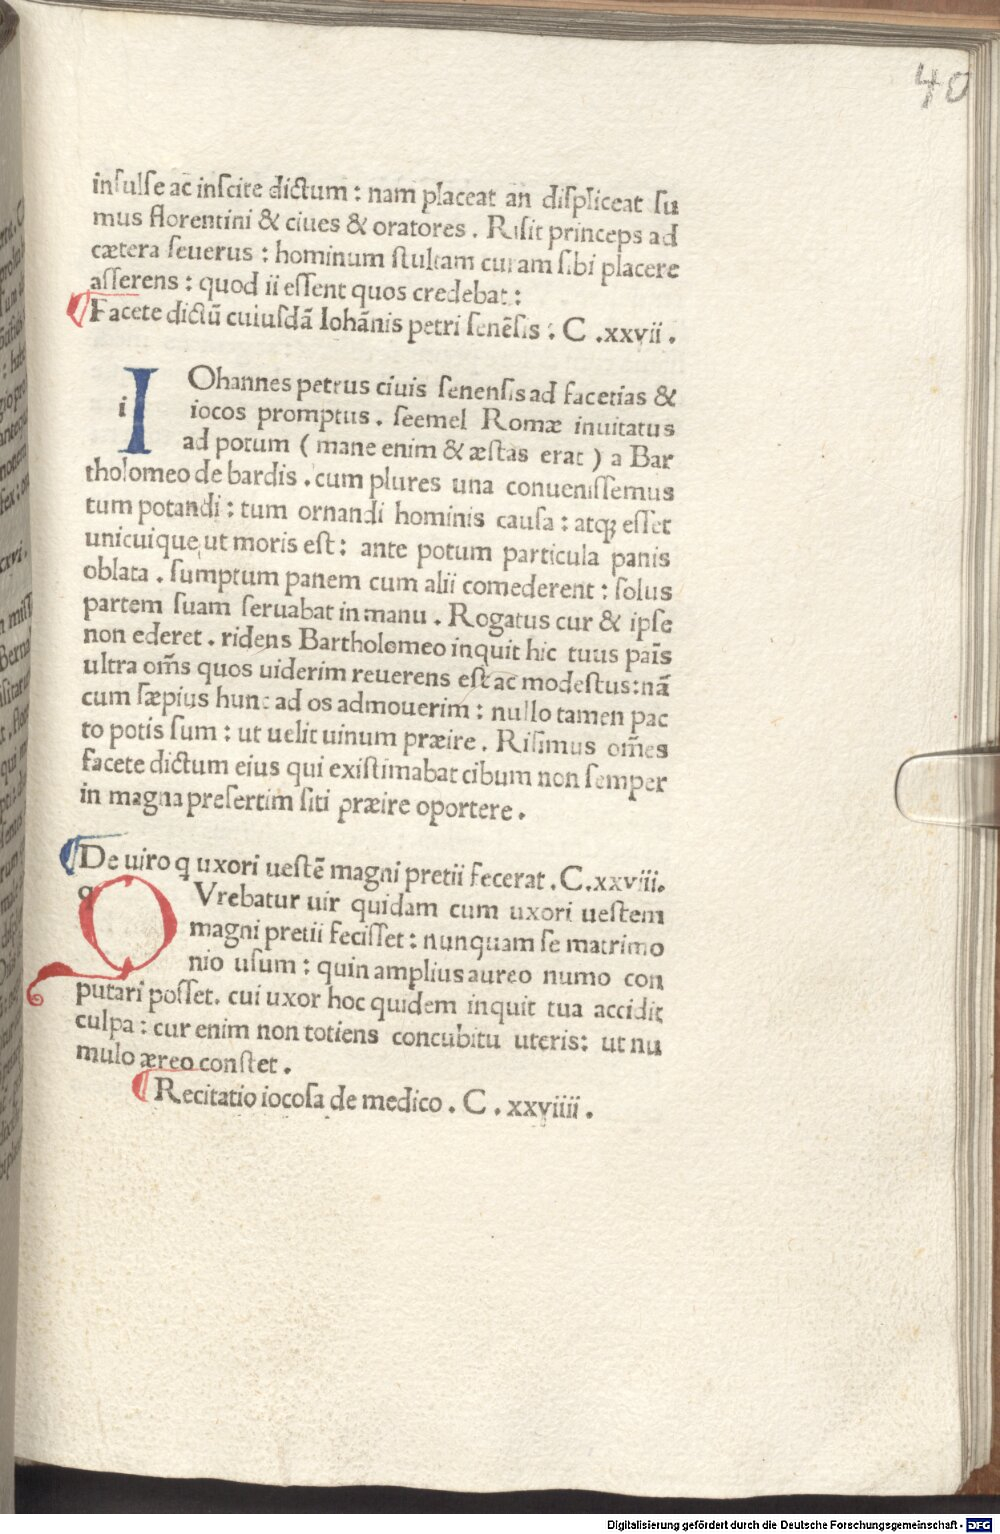 40
insulse ac inscite dictum : nam placeat an displiceat su
mus florentini & ciues & oratores . Risit princeps ad
cætera seuerus : hominum stultam curam sibi placere
asserens : quod ii essent quos credebat :
Facete dictũ cuiusdã Iohãnis petri senẽsis : C .xxvii .
i
IOhannes petrus ciuis senensis ad facetias &
iocos promptus . seemel Romæ inuitatus
ad potum ( mane enim & æstas erat ) a Bar
tholomeo de bardis . cum plures una conuenissemus
tum potandi : tum ornandi hominis causa : atqꝫ esset
unicuique ut moris est : ante potum particula panis
oblata . sumptum panem cum alii comederent : solus
partem suam seruabat in manu . Rogatus cur & ipse
non ederet . ridens Bartholomeo inquit hic tuus pais̃
ultra oms̃ quos uiderim reuerens est ac modestus : nã
cum sæpius hunc ad os admouerim : nullo tamen pac
to potis sum : ut uelit uinum præire . Risimus om̃es
facete dictum eius qui existimabat cibum non semper
in magna presertim siti præire oportere .
De uiro q uxori uestẽ magni pretii fecerat . C .xxviii.
q
QVrebatur uir quidam cum uxori uestem
magni pretii fecisset : nunquam se matrimo
nio usum : quin amplius aureo numo con
putari posset . cui uxor hoc quidem inquit tua accidit
culpa : cur enim non totiens concubitu uteris : ut nu
mulo æreo constet .
Recitatio iocosa de medico . C . xxviiii .
Digitalisierung gefördert durch die Deutsche Forschungsgemeinschaft - DFG